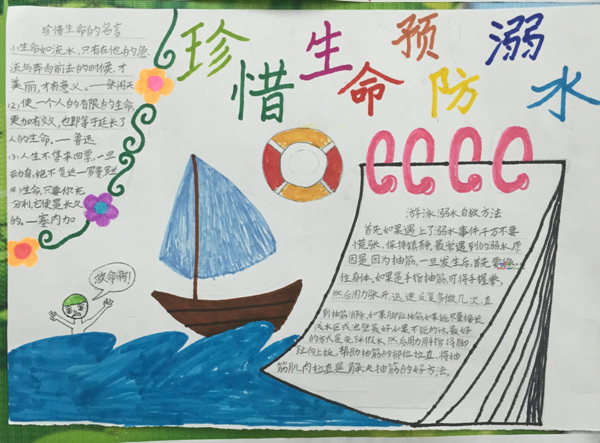 珍惜生命 预防溺水
珍惜生命的名言
(1)生命如流水,只有在他的急
流与奔向前去的时候,才
美丽,才有意义。——张闻天
(2)使一个人的有限的生命,
更加有效,也即等于延长了
人的生命。——鲁迅
(3)人生不售来回票,一旦
动身,绝不复返—罗曼罗兰
(4)生命,只要你充
分利它便是长久
的。—塞内加
救命啊!
游泳溺水自救方法
首先如果遇上了溺水事件千万不要
慌张,保持镇静,最常遇到的溺水原
因是因为抽筋,一旦发生后,首先要
住身体,如果是手指抽筋,可将手握拳,
然后用力张开,迅速反复多做几次,直
到抽筋消除,如果脚趾抽筋,如果能尽量接近
浅水区或池壁最好,如果不能的话,最好
的方式是先深吸水,然后用力用手指将脚
趾向上扳,帮助抽筋的部位拉直,将抽
筋肌肉拉直是解决抽筋的好方法。